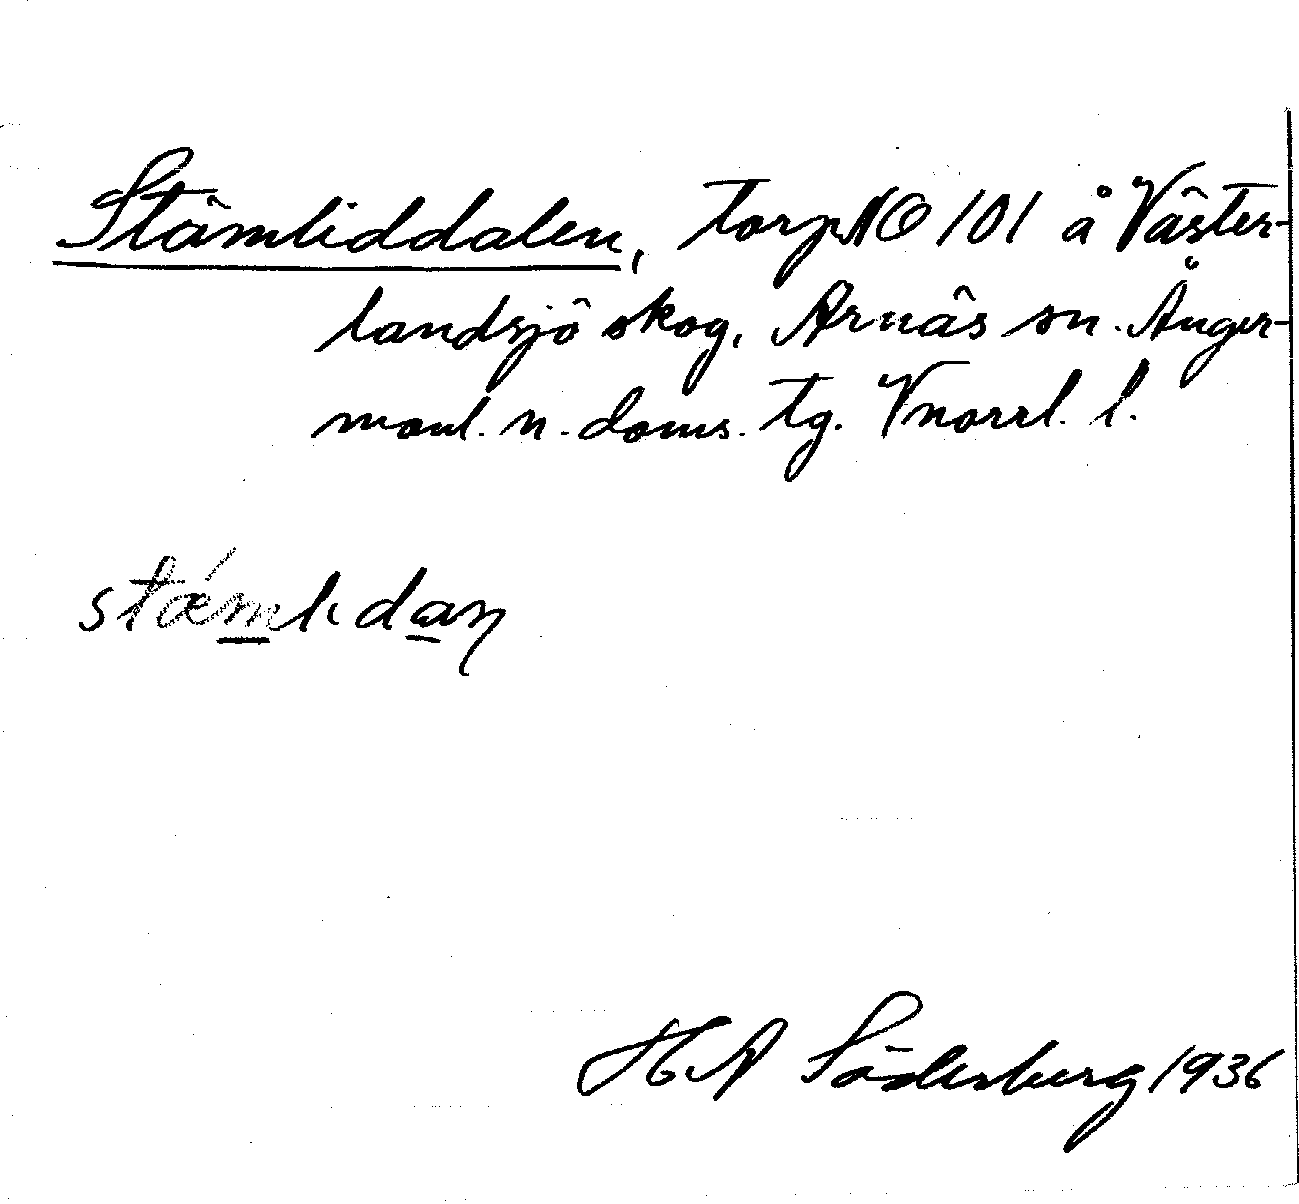 Stämliddalen, torp NO 101 å Väster-
landsjö skog, Arnäs sn. Ånger-
manl. n. doms. tg. Vnorrl. l.
stǽmlidaɳ
H A Söderberg 1936